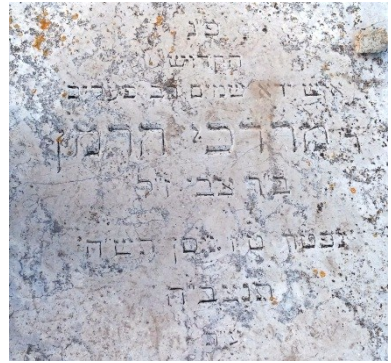 פ נ
הקדיש
שנים רב פעלים
מרדכי הרמן
בר צבי ז ל
נפטר טו ניסן תש ה
ת נ צ ב ה